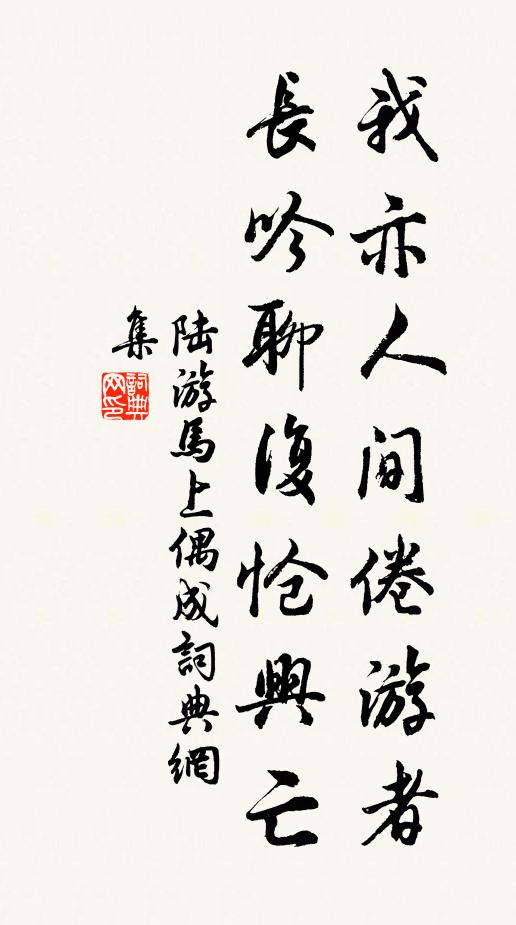 我亦人間倦游者
長吟聊復愴興亡
陸游馬上偶成詞典網
集
詞典
网印